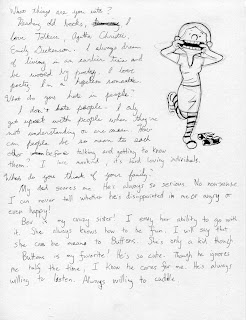 What things are you into?
Reading old books, I
love Tolkien, Agatha Christie,
Emily Dickenson. I always dream
of living in an earlier time and
be wooed by poetry. I love
poetry I'm a hopeless romantic
What do you hate in people?
I don't hate people. I only
get upset with people when they're
not understanding or are mean. How
can people be so mean to each
other before talking and getting to know
them? I are mankind, it's kind loving individuals.
What do you think of your family?
My dad scares me. He's always so serious. No nonsense
I can never tell whether he's disappointed in me or angry or
even happy!
Bev is my crazy sister! I envy her ability to go with
it. She always knows how to be fun. I will say that
she can be mean to Buttons. She's only a kid though
Buttons is my favorite! He's so cute. Though he ignores
me half the time, I know he cares for me. He's always
willing to listen. Always willing to cuddle